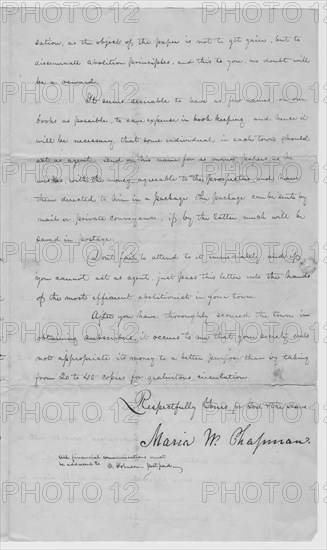 sation, as the object of the paper is not to get gain, but to
disseminate abolition principles, and this to you, no doubt will
be a reward.
It seems desirable to have as few names on our
books as possible, to save expense in book keeping, and hence it
will be necessary, that some individual in each town should
act as agent. Send on his name for as many papers as he
wishes, with the money agreeable to the prospectus, and have
them directed to him in a package. The package can be sent by
mail or private conveyance, if by the latter much will be
saved in postage.
Don't fail to attend to it immediately and if
you cannot act as agent, just pass this letter into the hands
of the most efficient abolitionist in your town.
After you have thoroughly scoured the town in
obtaining subscribers, it occurs to me that your society could
not appropriate its money to a better purpose than by taking
from 20 to 40 copies for gratuitous circulation.
Respectfully Yours, for God & the slave
Maria W. Chapman.
All financial communications must
be addressed to